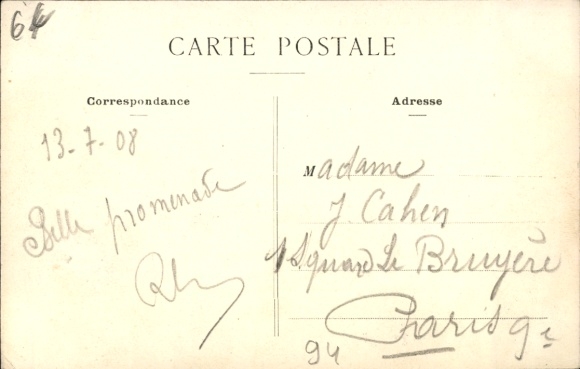 64
CARTE POSTALE
Correspondance
Adresse
13-7-08
Belle promenade
Madame
J. Cahen
1 Square La Bruyère
Paris 9e
94